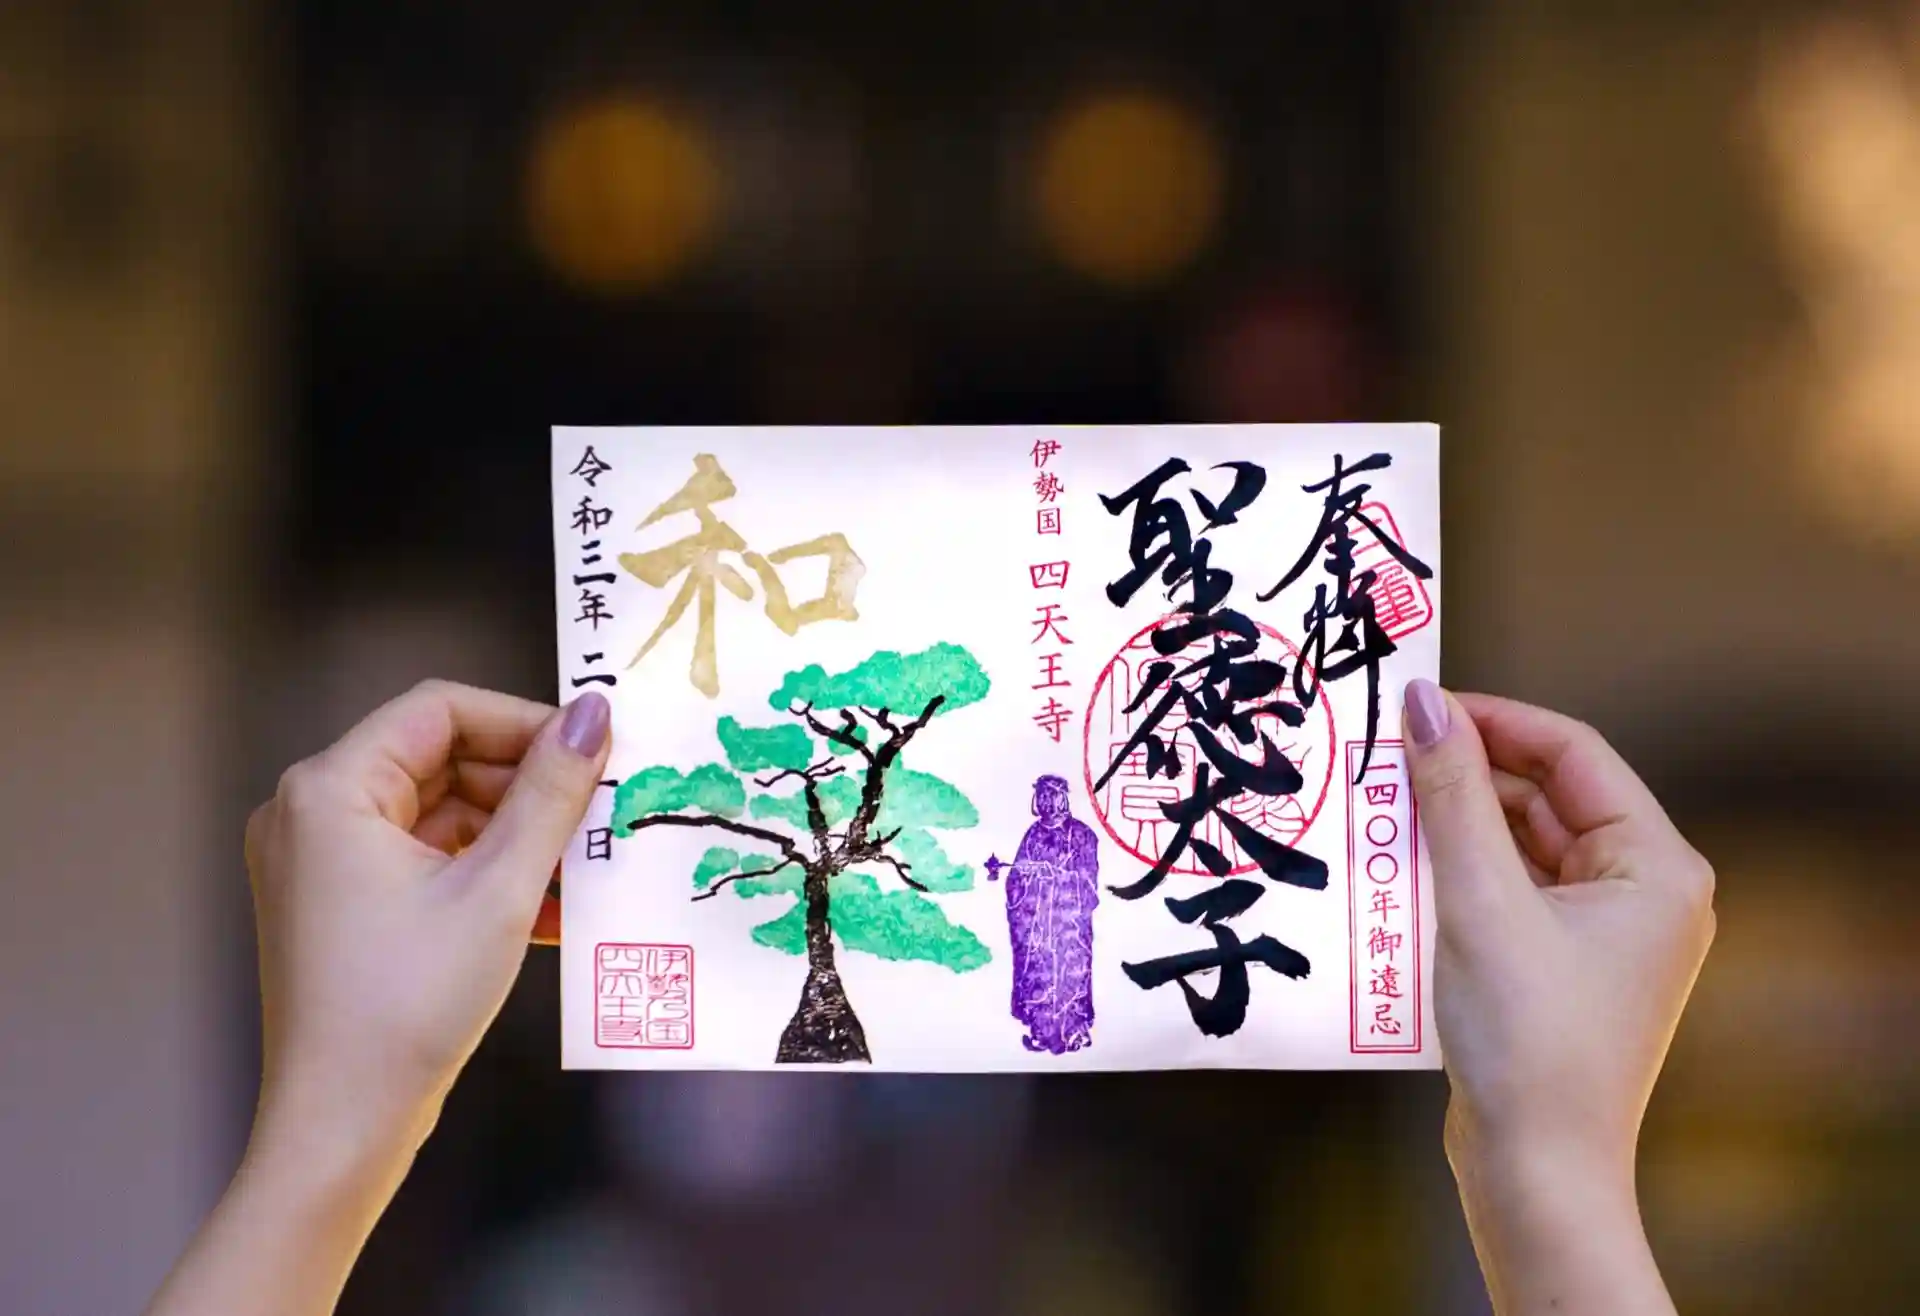 奉拝
三重
一四〇〇年御遠忌
聖徳太子
伊勢国 四天王寺
和
令和三年 二
日
伊勢国
四天王寺